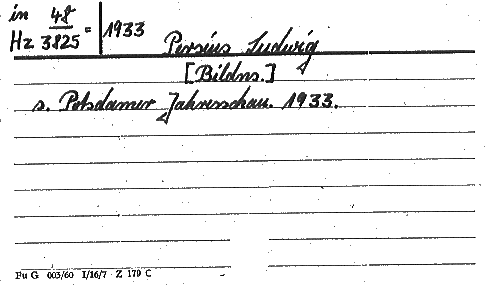 in 48
Hz 3825 = 1933
Persius Ludwig
[Bildns.]
s. Potsdamer Jahresschau. 1933.
Fu G 003/60 I/16/7 Z 179 C